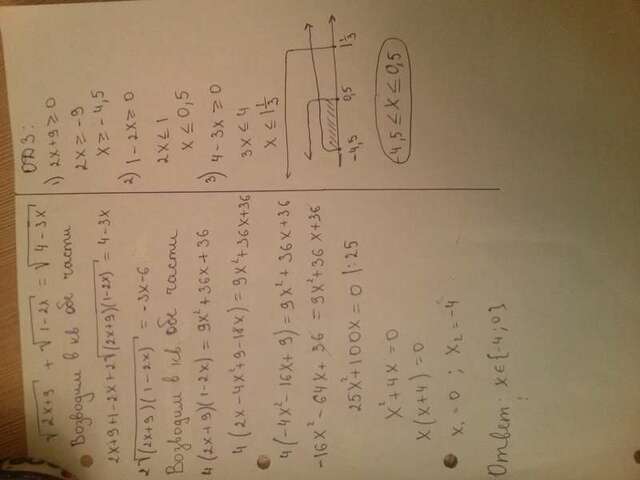 √2x+9 + √1-2x = √4-3x
Возводим в кв обе части
2x+9+1-2x+2√(2x+9)(1-2x) = 4-3x
2√(2x+9)(1-2x) = -3x-6
Возводим в кв обе части
4(2x+9)(1-2x) = 9x²+36x+36
4(2x-4x²+9-18x) = 9x²+36x+36
4(-4x²-16x+9) = 9x²+36x+36
-16x²-64x+36 = 9x²+36x+36
25x²+100x=0 |:25
x²+4x=0
x(x+4)=0
x₁=0; x₂=-4
Ответ: x∈{-4;0}
ОДЗ:
1) 2x+9≥0
2x≥-9
x≥-4,5
2) 1-2x≥0
2x≤1
x≤0,5
3) 4-3x≥0
3x≤4
x≤1 1/3
-4,5 0,5 1 1/3
-4,5≤x≤0,5